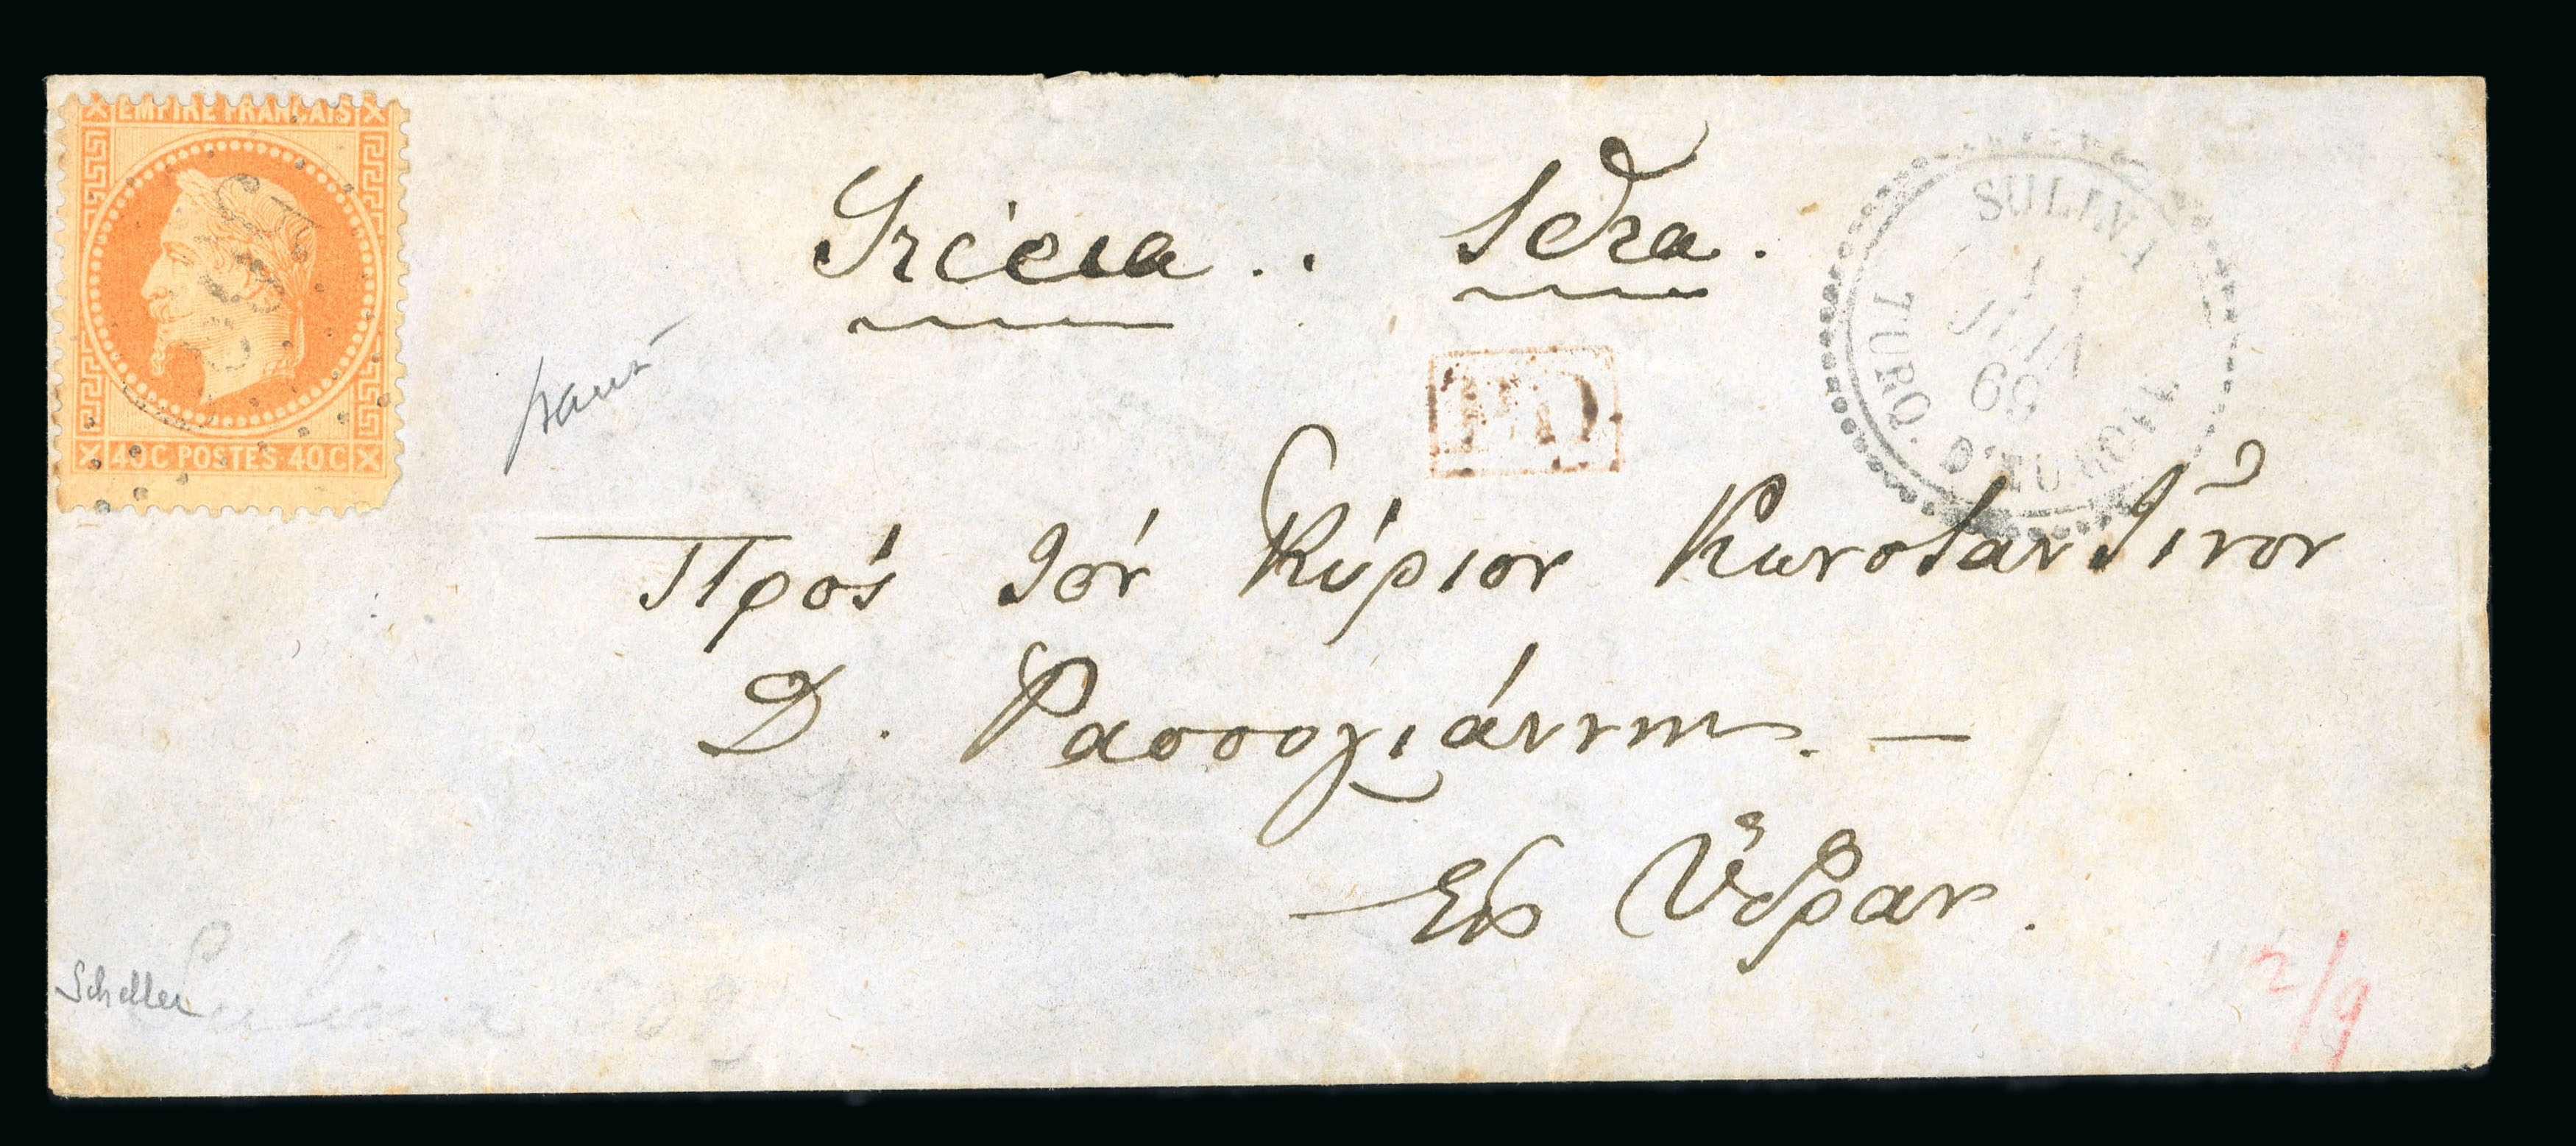 EMPIRE FRANÇAIS
40C POSTES 40C
Grécia . . Idra .
SULINA
11
JUIN
69
TURQ. D'EUROPE
PD
Πρός τόν Κύριον Κωνσταντῖνον
Δ. Ρασσογιάννην. —
Εἰς Ὕδραν.
Scheller
2/9